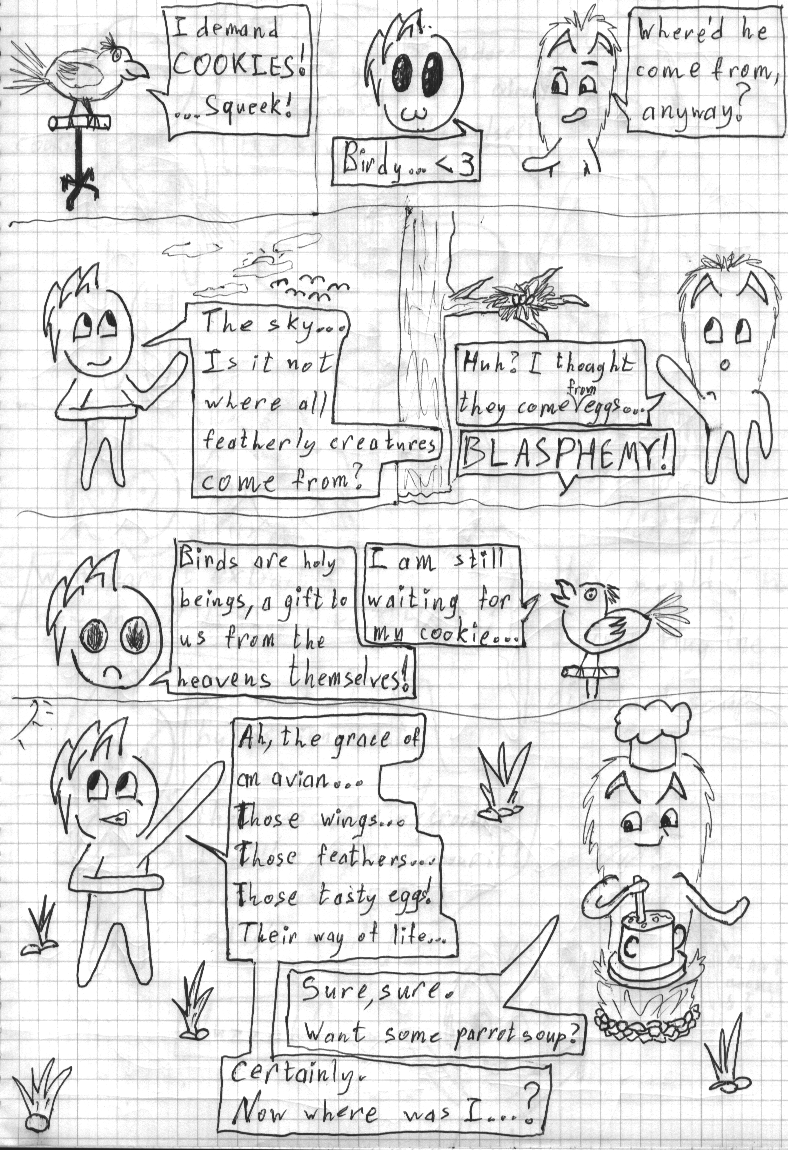 I demand
COOKIES!
...Squeek!
Birdy... <3
Where'd he
come from,
anyway?
The sky...
Is it not
where all
featherly creatures
come from?
Huh? I thought
they come from eggs...
BLASPHEMY!
Birds are holy
beings, a gift to
us from the
heavens themselves!
I am still
waiting for
my cookie...
Ah, the grace of
an avian...
Those wings...
Those feathers...
Those tasty eggs!
Their way of life...
Sure, sure.
Want some parrot soup?
Certainly.
Now where was I...?